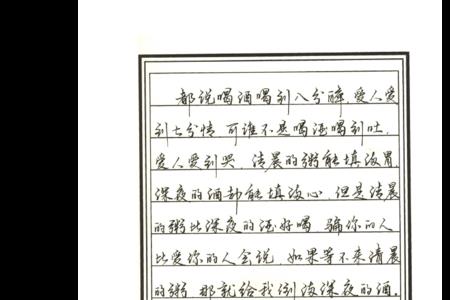 都说喝酒喝到八分醉，爱人爱
到七分情 可谁不是喝酒喝到吐
爱人爱到哭，清晨的粥能填满胃，
深夜的酒却能填满心，但是清晨
的粥比深夜的酒好喝 骗你的人
比爱你的人会说，如果等不来清晨
的粥 那就给我倒满深夜的酒。